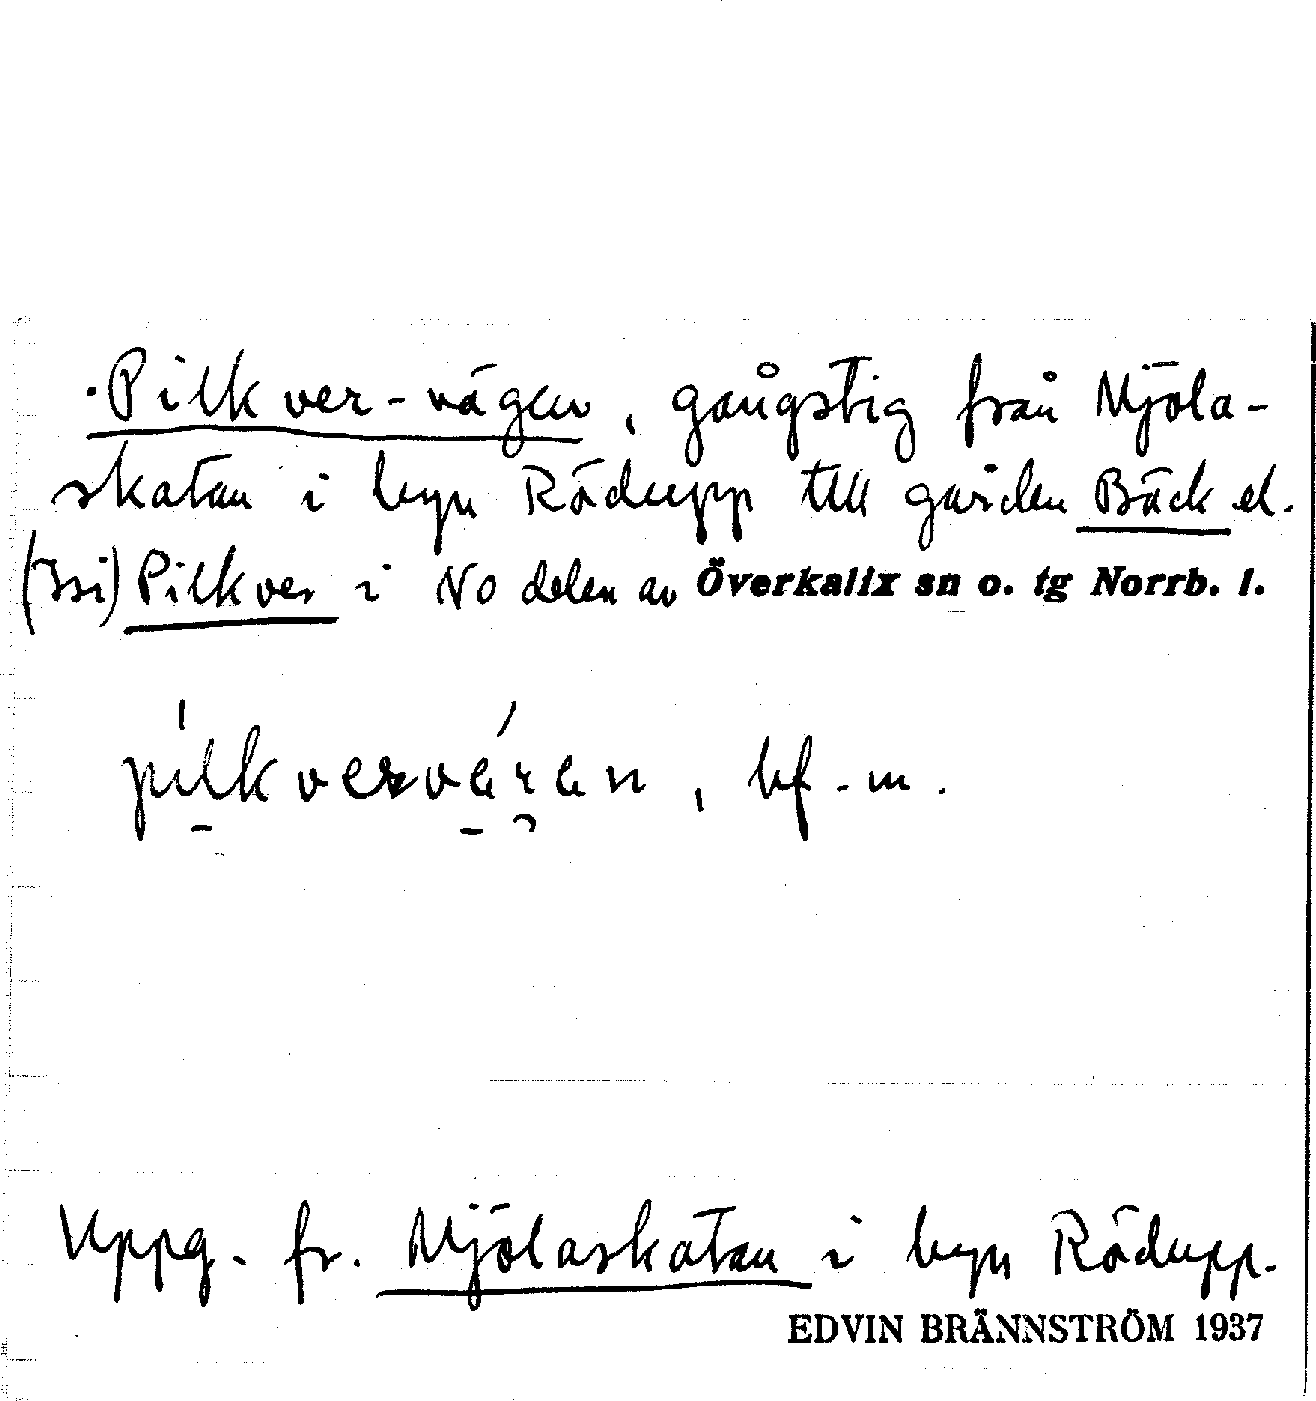 Pilkver-vägen, gångstig från Mjöla-
skatan i byn Rödupp till gården Bäck el.
Pilkver i NO delen av Överkalix sn o. tg Norrb. l.
pilkverväran, bf. m.
Uppg. fr. Mjölaskatan i byn Rödupp.
EDVIN BRÄNNSTRÖM 1937